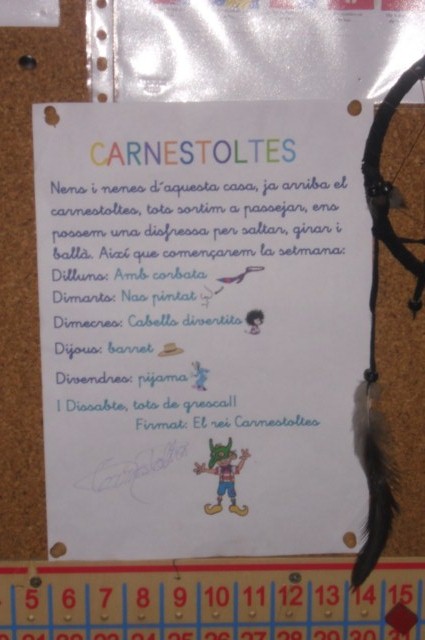 CARNESTOLTES
Nens i nenes d'aquesta casa, ja arriba el
carnestoltes, tots sortim a passejar, ens
possem una disfressa per saltar, girar i
ballà. Així que començarem la setmana:
Dilluns: Amb corbata
Dimarts: Nas pintat
Dimecres: Cabells divertits
Dijous: barret
Divendres: pijama
I Dissabte, tots de gresca!!
Firmat: El rei Carnestoltes
5 6 7 8 9 10 11 12 13 14 15